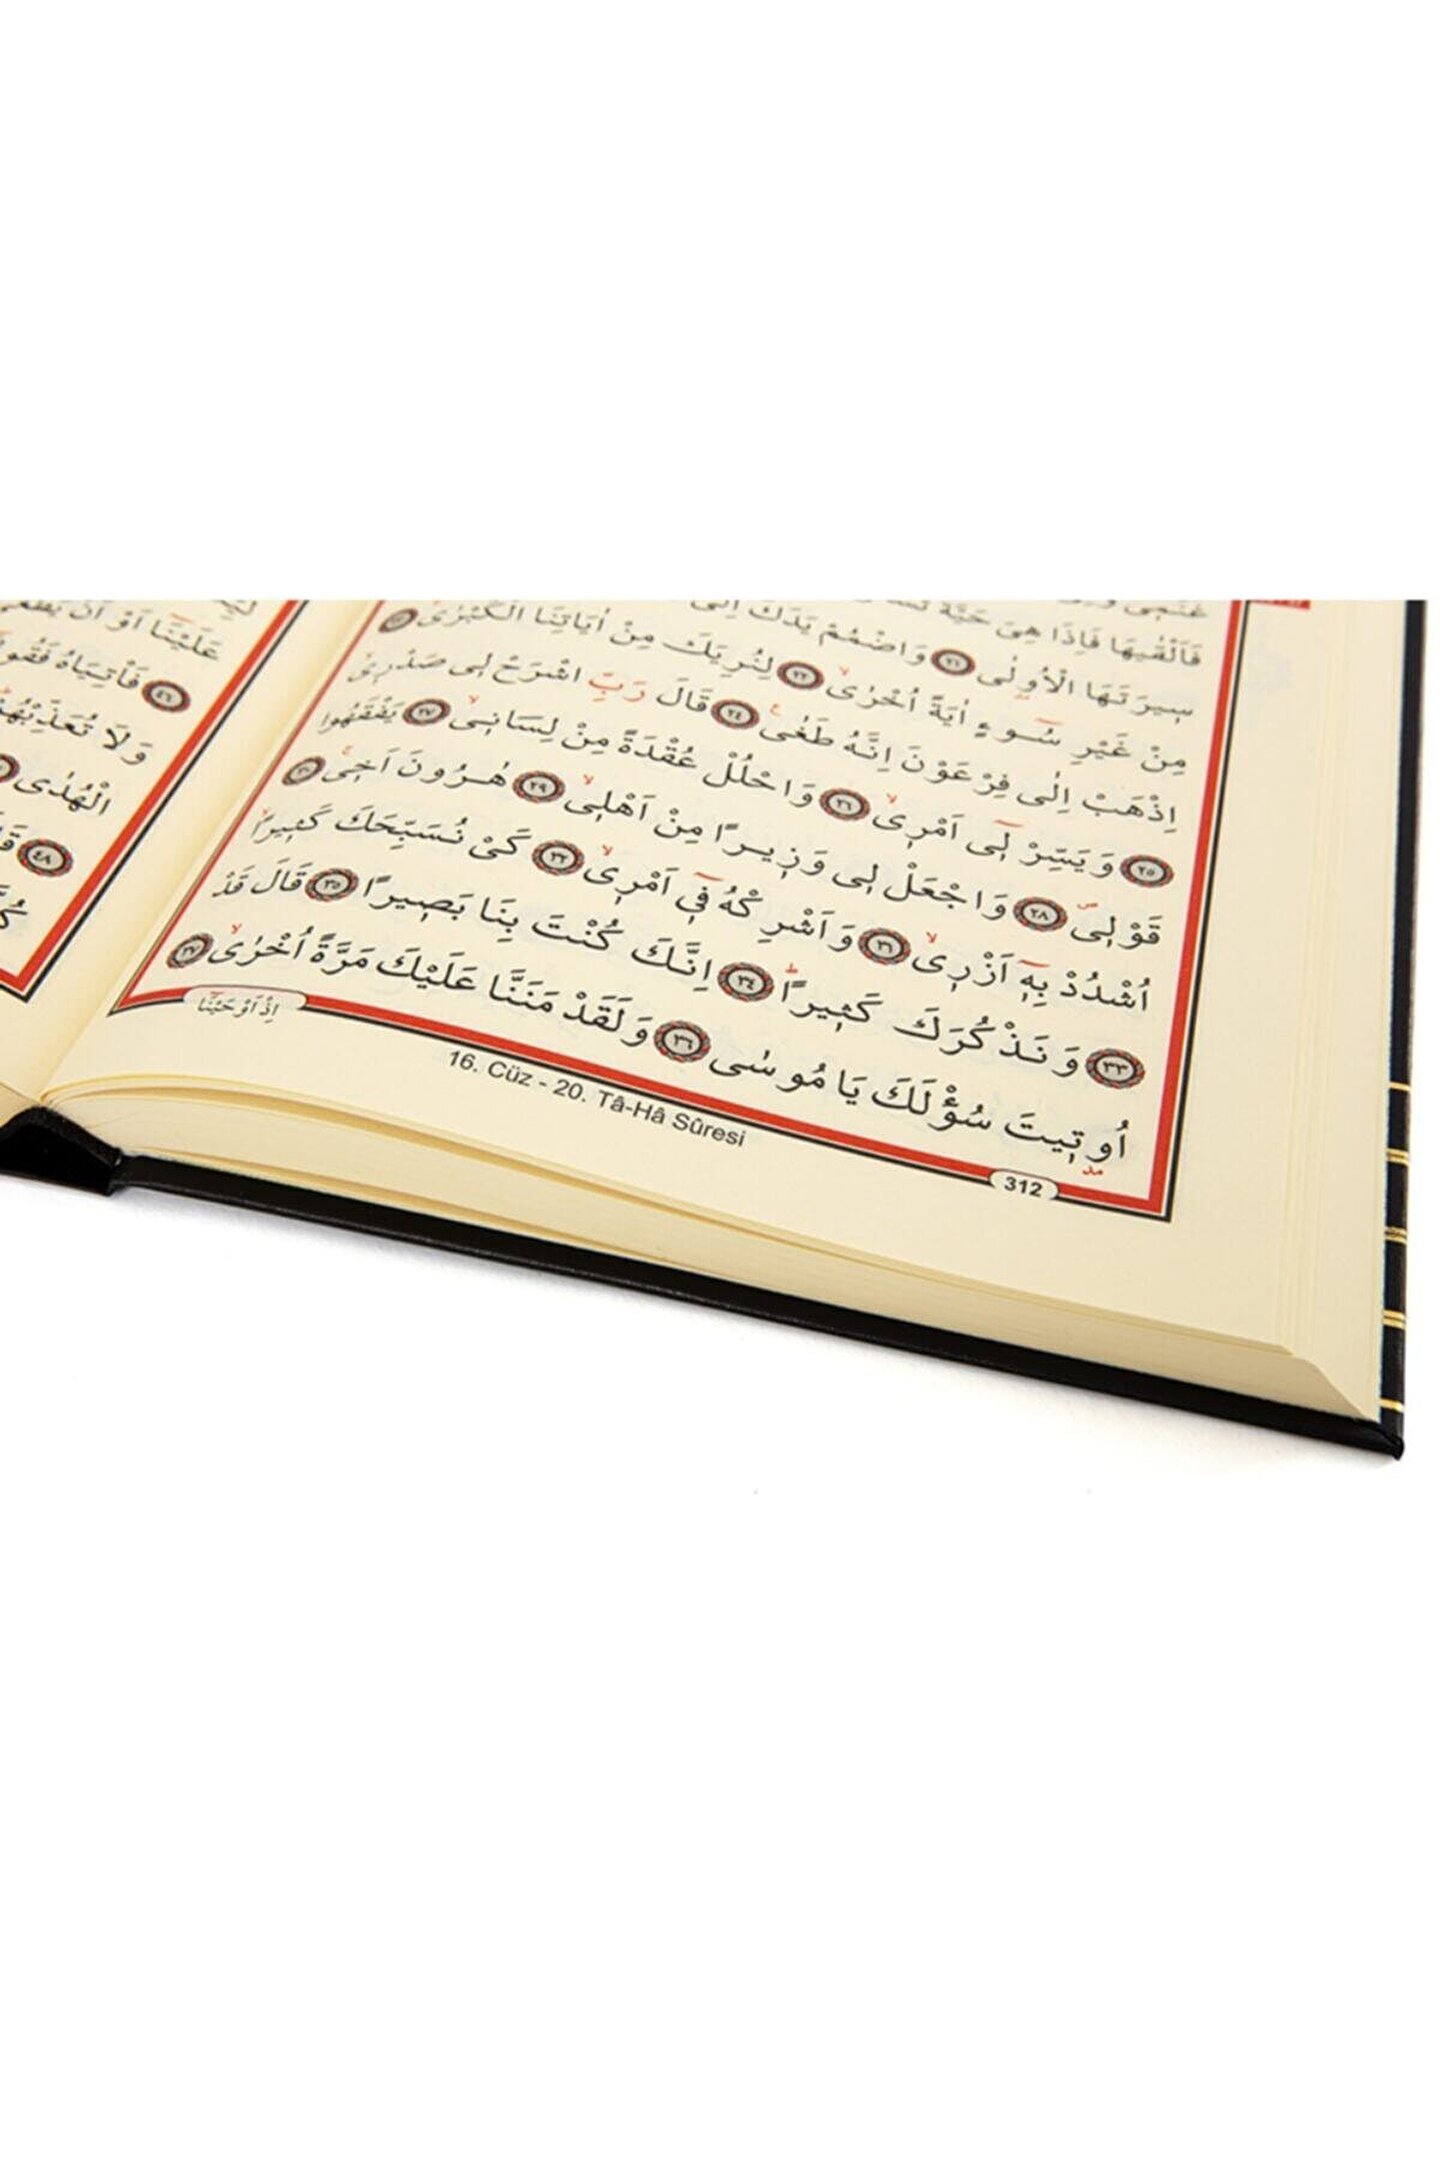 فَاَلْقٰيهَا فَاِذَا هِىَ حَيَّةٌ
سٖيرَتَهَا الْاُولٰى ﴿٢١﴾ وَاضْمُمْ يَدَكَ اِلٰى
مِنْ غَيْرِ سُوءٍ اٰيَةً اُخْرٰى ﴿٢٢﴾ لِنُرِيَكَ مِنْ اٰيَاتِنَا الْكُبْرٰى ﴿٢٣﴾
اِذْهَبْ اِلٰى فِرْعَوْنَ اِنَّهُ طَغٰى ﴿٢٤﴾ قَالَ رَبِّ اشْرَحْ لٖى صَدْرٖى
﴿٢٥﴾ وَيَسِّرْ لٖٓى اَمْرٖى ﴿٢٦﴾ وَاحْلُلْ عُقْدَةً مِنْ لِسَانٖى ﴿٢٧﴾ يَفْقَهُوا
قَوْلٖى ﴿٢٨﴾ وَاجْعَلْ لٖى وَزٖيرًا مِنْ اَهْلٖى ﴿٢٩﴾ هٰرُونَ اَخٖى ﴿٣٠﴾
اُشْدُدْ بِهٖٓ اَزْرٖى ﴿٣١﴾ وَاَشْرِكْهُ فٖٓى اَمْرٖى ﴿٣٢﴾ كَىْ نُسَبِّحَكَ كَثٖيرًا
﴿٣٣﴾ وَنَذْكُرَكَ كَثٖيرًا ﴿٣٤﴾ اِنَّكَ كُنْتَ بِنَا بَصٖيرًا ﴿٣٥﴾ قَالَ قَدْ
اُوتٖيتَ سُؤْلَكَ يَا مُوسٰى ﴿٣٦﴾ وَلَقَدْ مَنَنَّا عَلَيْكَ مَرَّةً اُخْرٰى ﴿٣٧﴾
مد
312
اِذْ اَوْحَيْنَا
16. Cüz - 20. Tâ-Hâ Sûresi
عَلَيْنَا اَوْ اَنْ
﴿٤٦﴾ فَاْتِيَاهُ
وَلَا تُعَذِّبْهُمْ
الْهُدٰى
﴿٤٨﴾